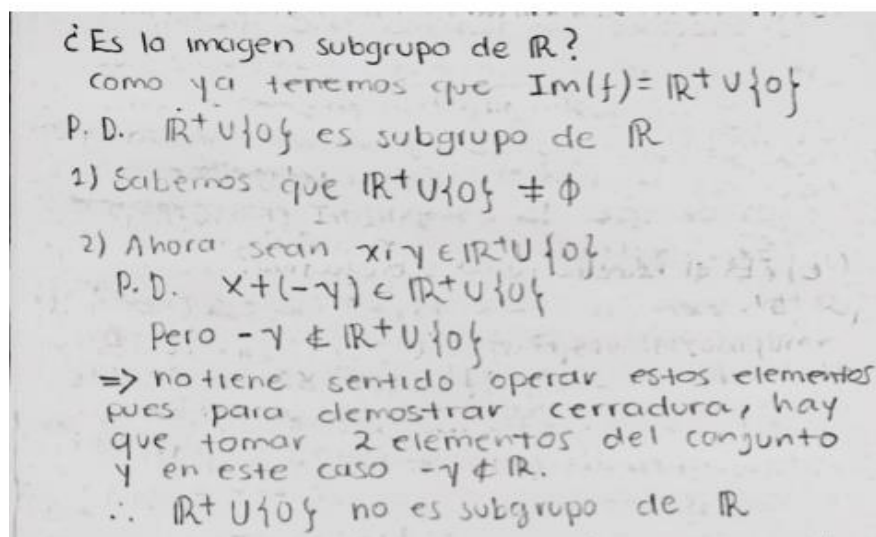 ¿Es la imagen subgrupo de ℝ?
como ya tenemos que Im(f)=ℝ⁺∪{0}
P.D. ℝ⁺∪{0} es subgrupo de ℝ
1) Sabemos que ℝ⁺∪{0} ≠ ϕ
2) Ahora sean x,y ∈ ℝ⁺∪{0}
P.D. x+(-y) ∈ ℝ⁺∪{0}
Pero -y ∉ ℝ⁺∪{0}
=> no tiene sentido operar estos elementos
pues para demostrar cerradura, hay
que, tomar 2 elementos del conjunto
y en este caso -y ∉ ℝ.
∴ ℝ⁺∪{0} no es subgrupo de ℝ